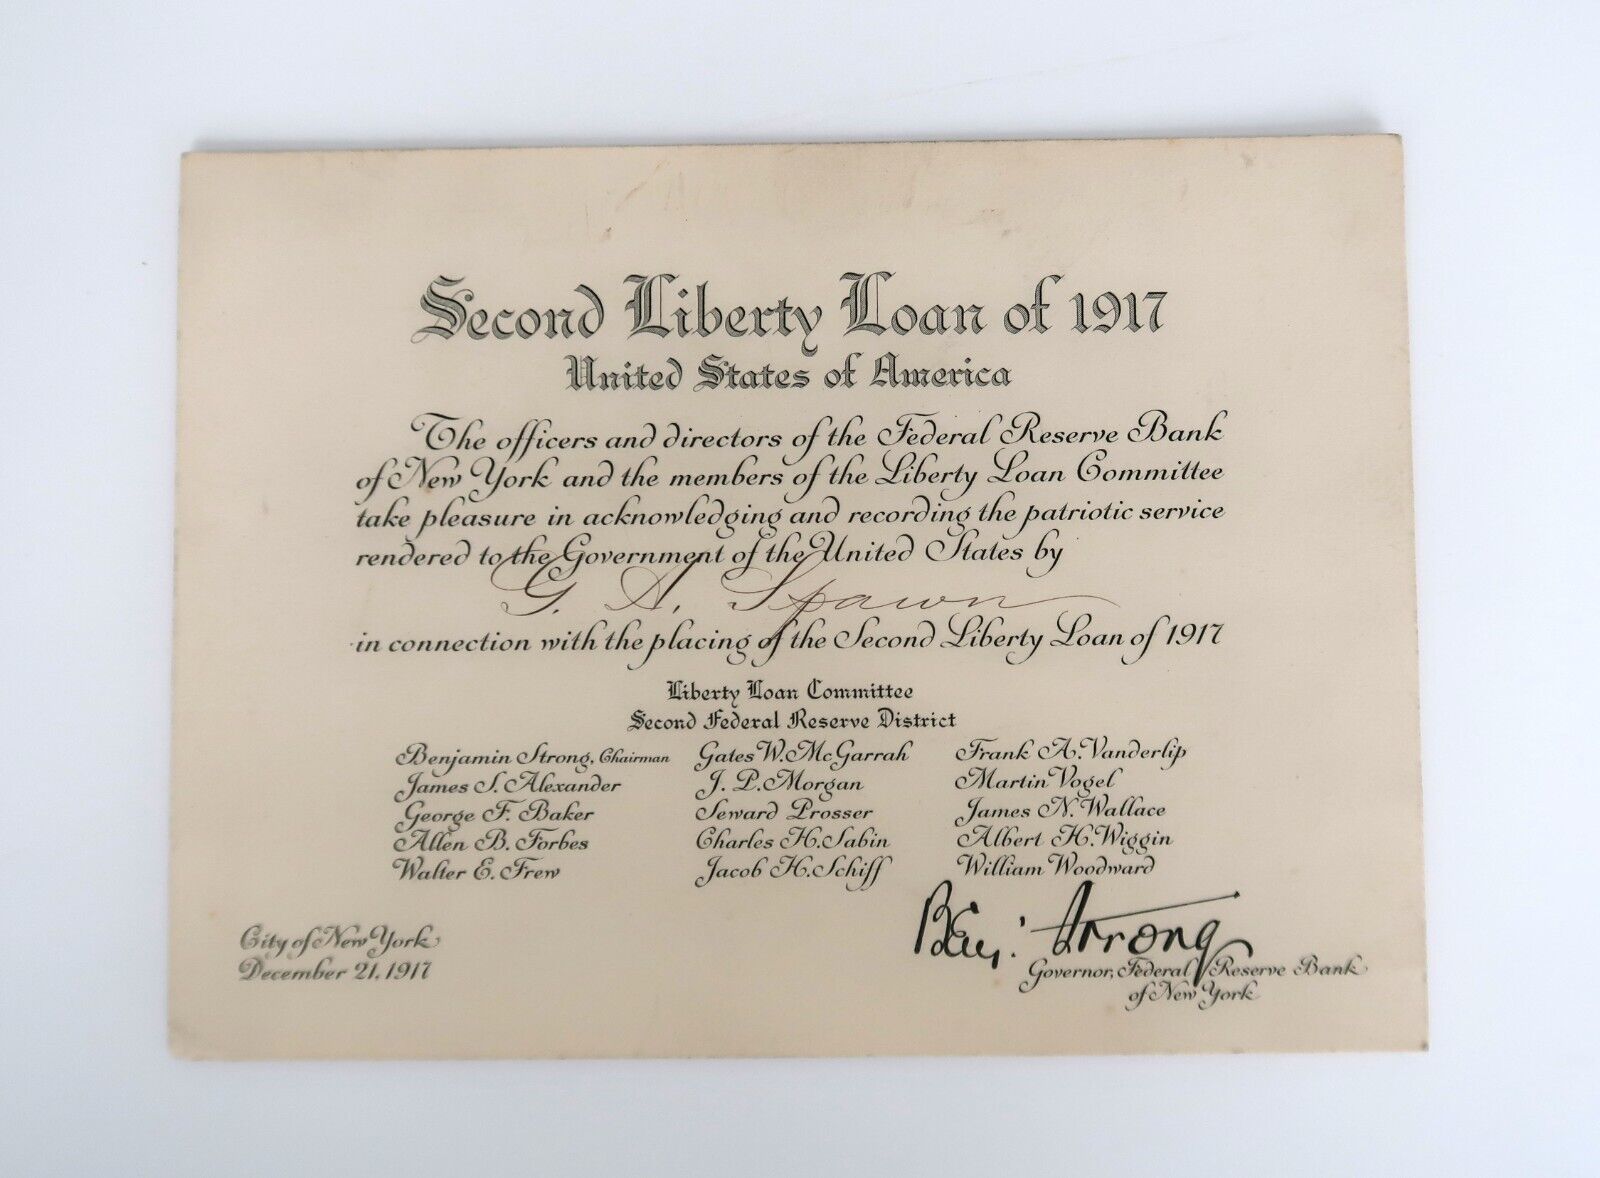 Second Liberty Loan of 1917
United States of America
The officers and directors of the Federal Reserve Bank
of New York and the members of the Liberty Loan Committee
take pleasure in acknowledging and recording the patriotic service
rendered to the Government of the United States by
G. A. Spawn
in connection with the placing of the Second Liberty Loan of 1917
Liberty Loan Committee
Second Federal Reserve District
Benjamin Strong, Chairman
James S. Alexander
George F. Baker
Allen B. Forbes
Walter E. Frew
Gates W. McGarrah
J. P. Morgan
Seward Prosser
Charles H. Sabin
Jacob H. Schiff
Frank A. Vanderlip
Martin Vogel
James N. Wallace
Albert H. Wiggin
William Woodward
City of New York
December 21, 1917
Benj. Strong
Governor, Federal Reserve Bank
of New York